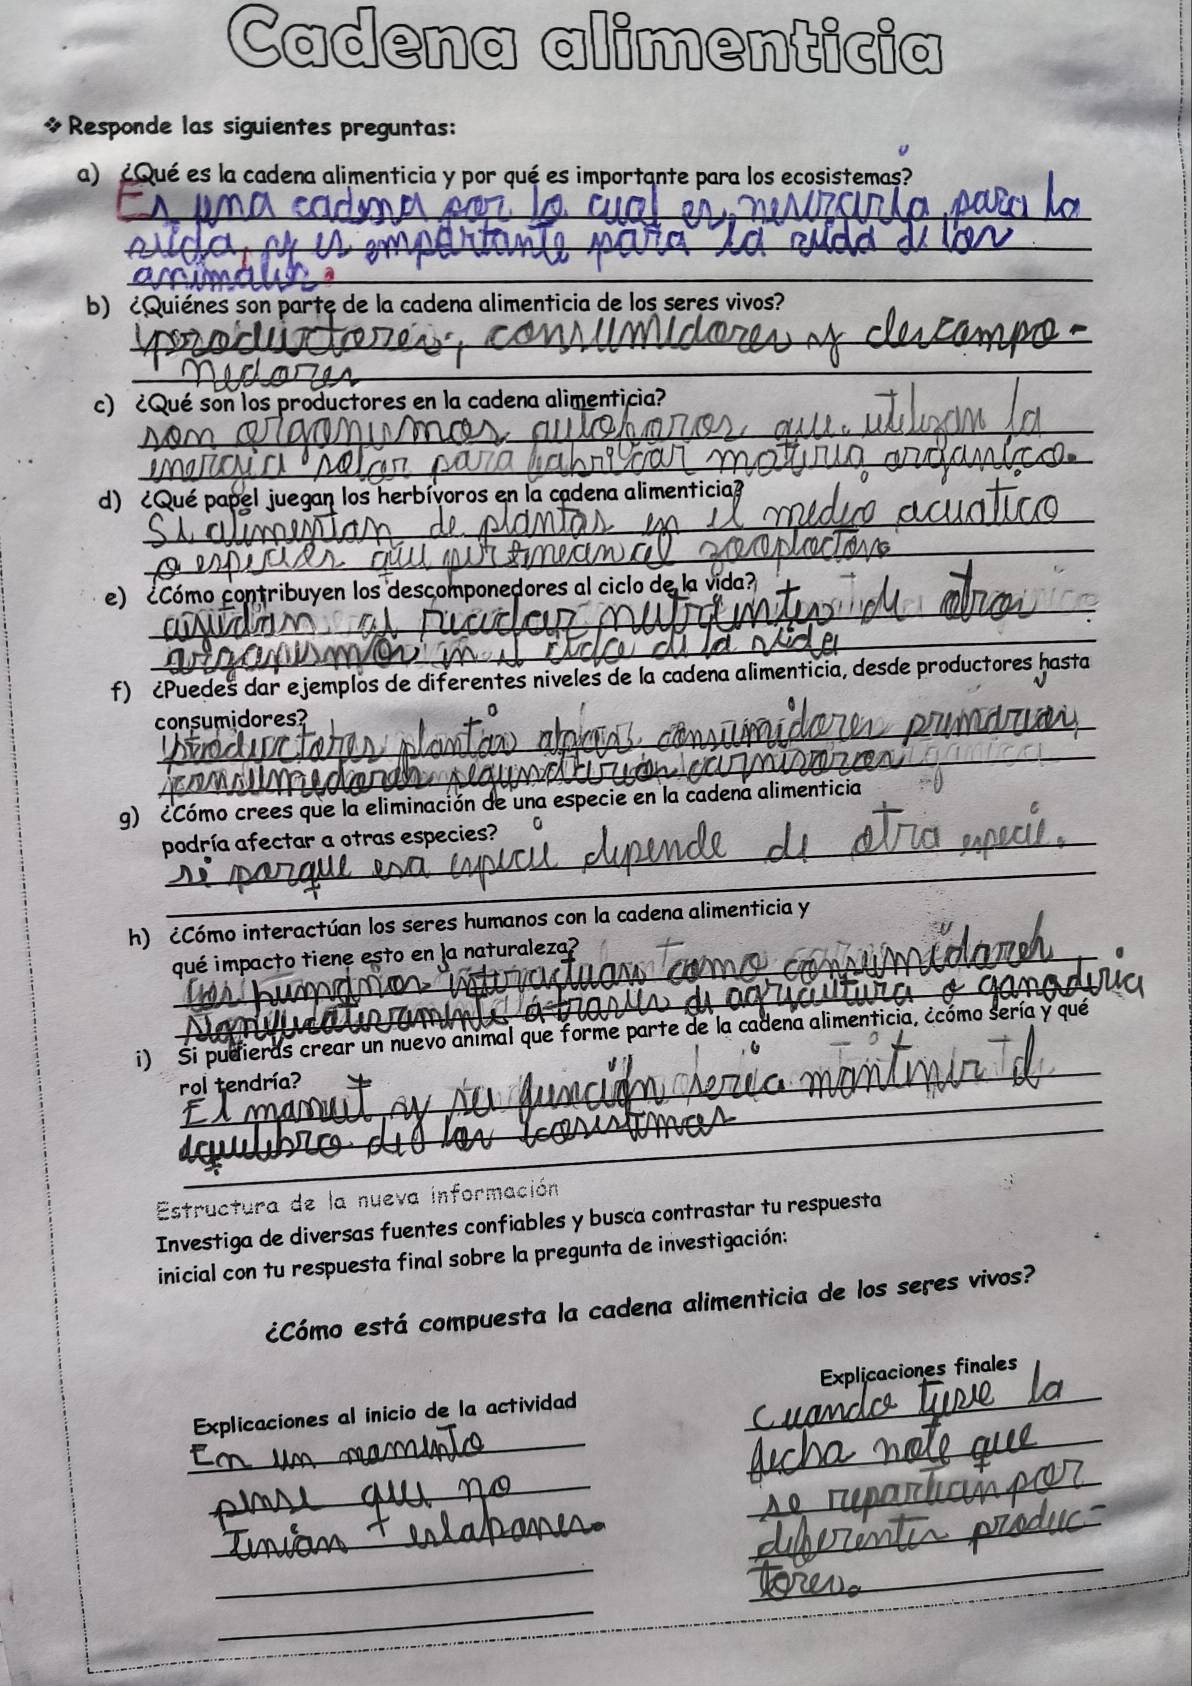 Cadena alimenticia
❖ Responde las siguientes preguntas:
a) ¿Qué es la cadena alimenticia y por qué es importante para los ecosistemas?
Es una cadena por lo cual es nesesaria, para la
vida, y es emportante para la vida de los
animales.
b) ¿Quiénes son parte de la cadena alimenticia de los seres vivos?
productores, consumidores y descompo-
nedores
c) ¿Qué son los productores en la cadena alimenticia?
son organismos autoforos que utilizan la
energia solar para fabricar materia organica.
d) ¿Qué papel juegan los herbívoros en la cadena alimenticia?
Se alimentan de plantas en el medio acuatico
o especies que pertenecen al zooplacton
e) ¿Cómo contribuyen los descomponedores al ciclo de la vida?
ayudan al reciclar nutrientes de otros
organismos en el ciclo de la vida
f) ¿Puedes dar ejemplos de diferentes niveles de la cadena alimenticia, desde productores hasta
consumidores?
productores plantas algas consumidores primarios,
consumedores segundarios carnivoros
g) ¿Cómo crees que la eliminación de una especie en la cadena alimenticia
podría afectar a otras especies?
si porque esa especie depende de otra especie.
h) ¿Cómo interactúan los seres humanos con la cadena alimenticia y
qué impacto tiene esto en la naturaleza?
Los humanos interactuan como consumidores
significativamente atraves de agricultura o ganaderia
i) Si pudieras crear un nuevo animal que forme parte de la cadena alimenticia, ¿cómo sería y qué
rol tendría?
El mamut y su función seria mantener el
equilibro de los ecosistemas
Estructura de la nueva información
Investiga de diversas fuentes confiables y busca contrastar tu respuesta
inicial con tu respuesta final sobre la pregunta de investigación:
¿Cómo está compuesta la cadena alimenticia de los seres vivos?
Explicaciones al inicio de la actividad
En un momento
pense que no
tenian eslabones.
Explicaciones finales
Cuando tuve la
fecha note que
se reparticin por
diferentes produc-
tores.